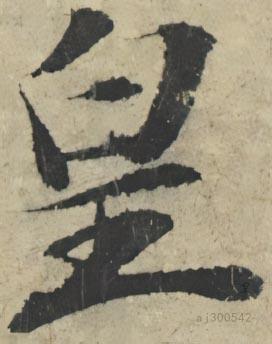 皇
aj300542